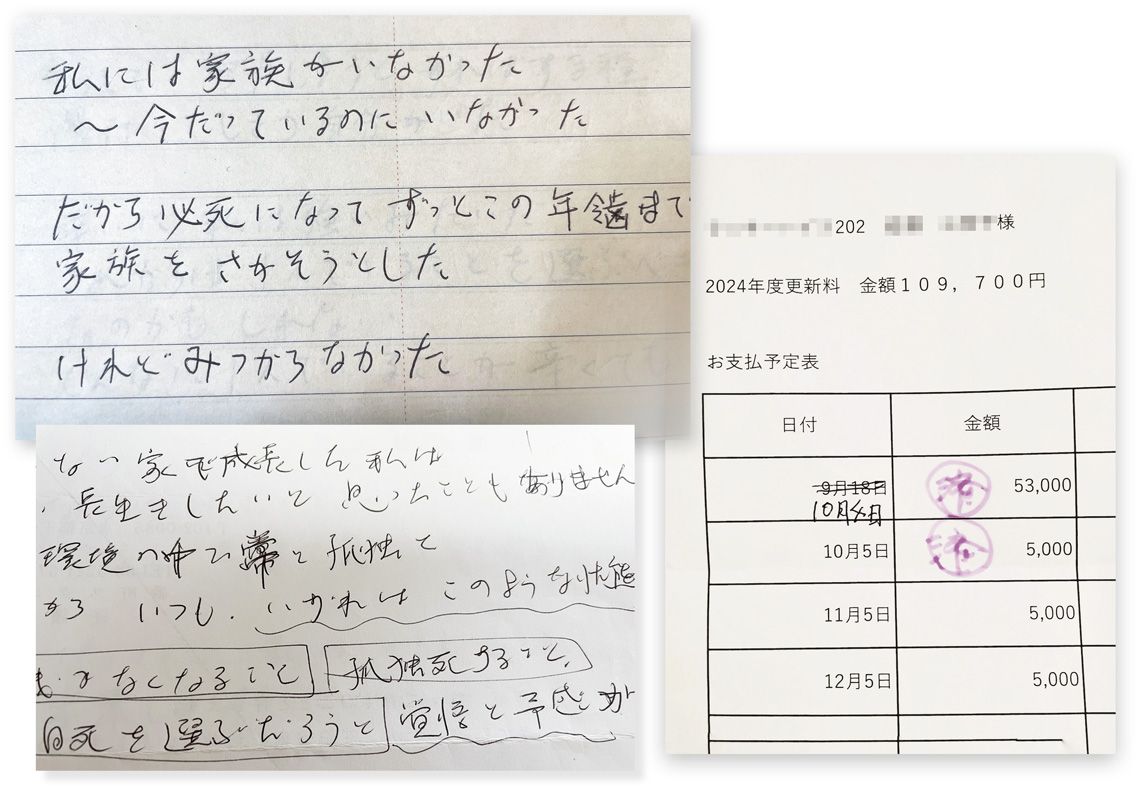 私には家族がいなかった
〜今だっているのにいなかった
だから必死になってずっとこの年齢まで
家族をさがそうとした
けれどみつからなかった
ない家で成長した私は
長生きしたいと思ったこともありません
環境の中で常に孤独で
から いつも、いずれはこのような状態
なくなること 孤独死すること、
自死を選ぶだろうと 覚悟と予感が
202 様
2024年度更新料 金額109,700円
お支払予定表
日付 金額
9月18日 済 53,000
10月4日
10月5日 済 5,000
11月5日 5,000
12月5日 5,000